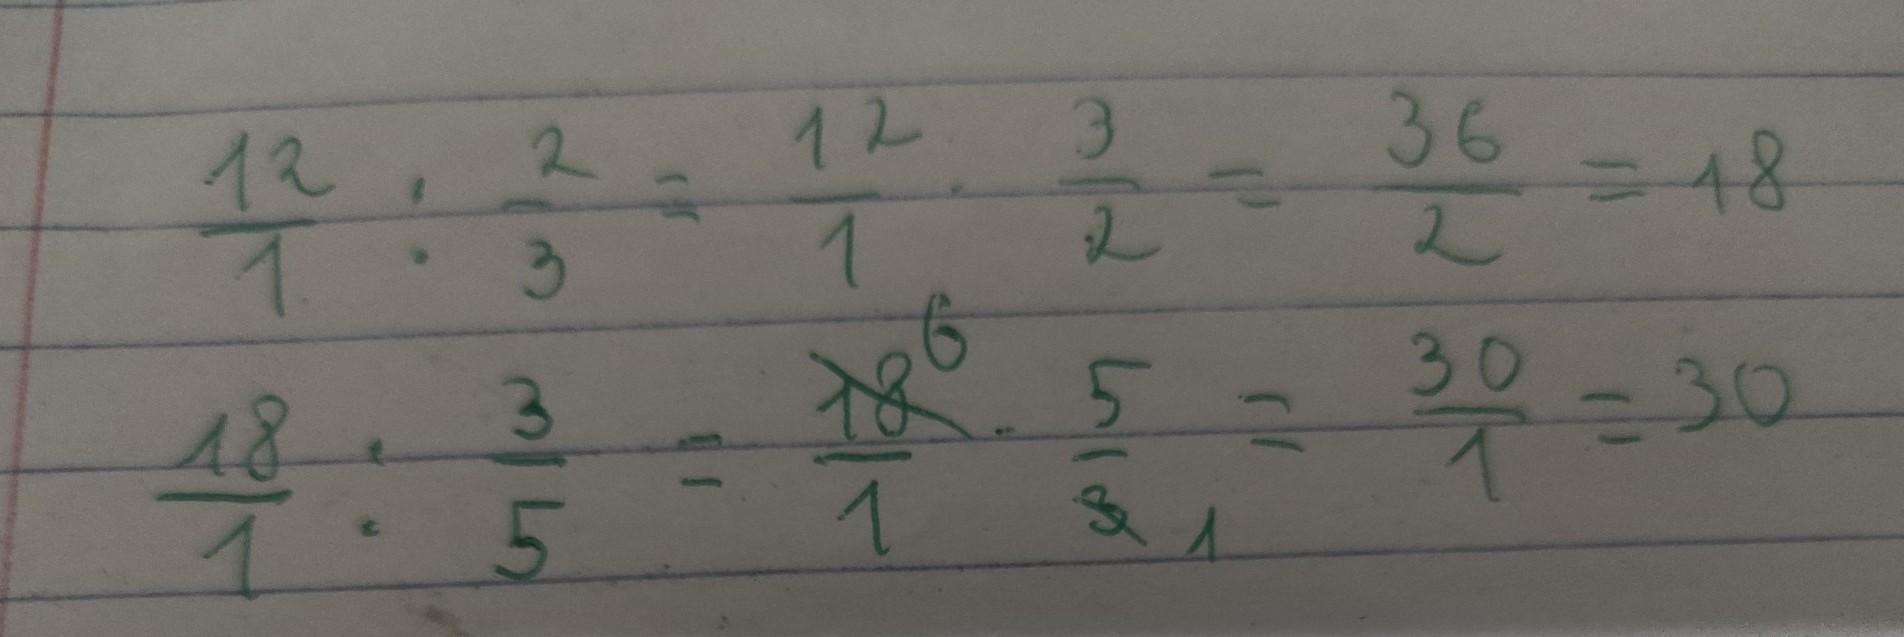 12/1 : 2/3 = 12/1 · 3/2 = 36/2 = 18
18/1 : 3/5 = 18 6/1 · 5/3 1 = 30/1 = 30